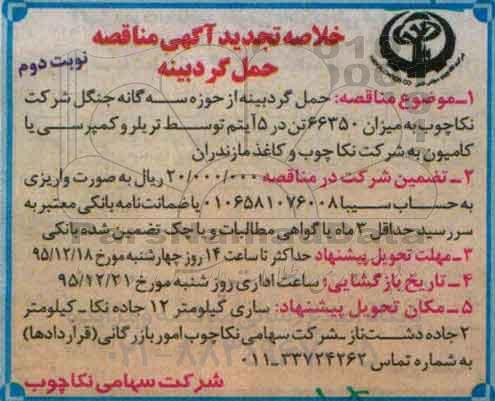 خلاصه تجدید آگهی مناقصه
حمل گرده‌بینه
نوبت دوم
۱ـ موضوع مناقصه: حمل گرده‌بینه از حوزه سه گانه جنگل شرکت
نکاچوب به میزان ۶۶۳۵۰ تن در ۵ آیتم توسط تریلر و کمپرسی یا
کامیون به شرکت نکا چوب و کاغذ مازندران
۲ـ تضمین شرکت در مناقصه ۲۰/۰۰۰/۰۰۰ ریال به صورت واریزی
به حساب سیبا ۰۱۰۶۵۸۱۰۷۶۰۰۸ یا ضمانت نامه بانکی معتبر به
سررسید حداقل ۳ ماه یا گواهی مطالبات و یا چک تضمین شده بانکی
۳ـ مهلت تحویل پیشنهاد حداکثر تا ساعت ۱۴ روز چهارشنبه مورخ ۹۵/۱۲/۱۸
۴ـ تاریخ بازگشایی: ساعت اداری روز شنبه مورخ ۹۵/۱۲/۲۱
۵ـ مکان تحویل پیشنهاد: ساری کیلومتر ۱۲ جاده نکا ـ کیلومتر
۲ جاده دشت‌ناز ـ شرکت سهامی نکاچوب امور بازرگانی (قراردادها)
به شماره تماس ۳۳۷۲۴۲۶۲-۰۱۱
شرکت سهامی نکاچوب